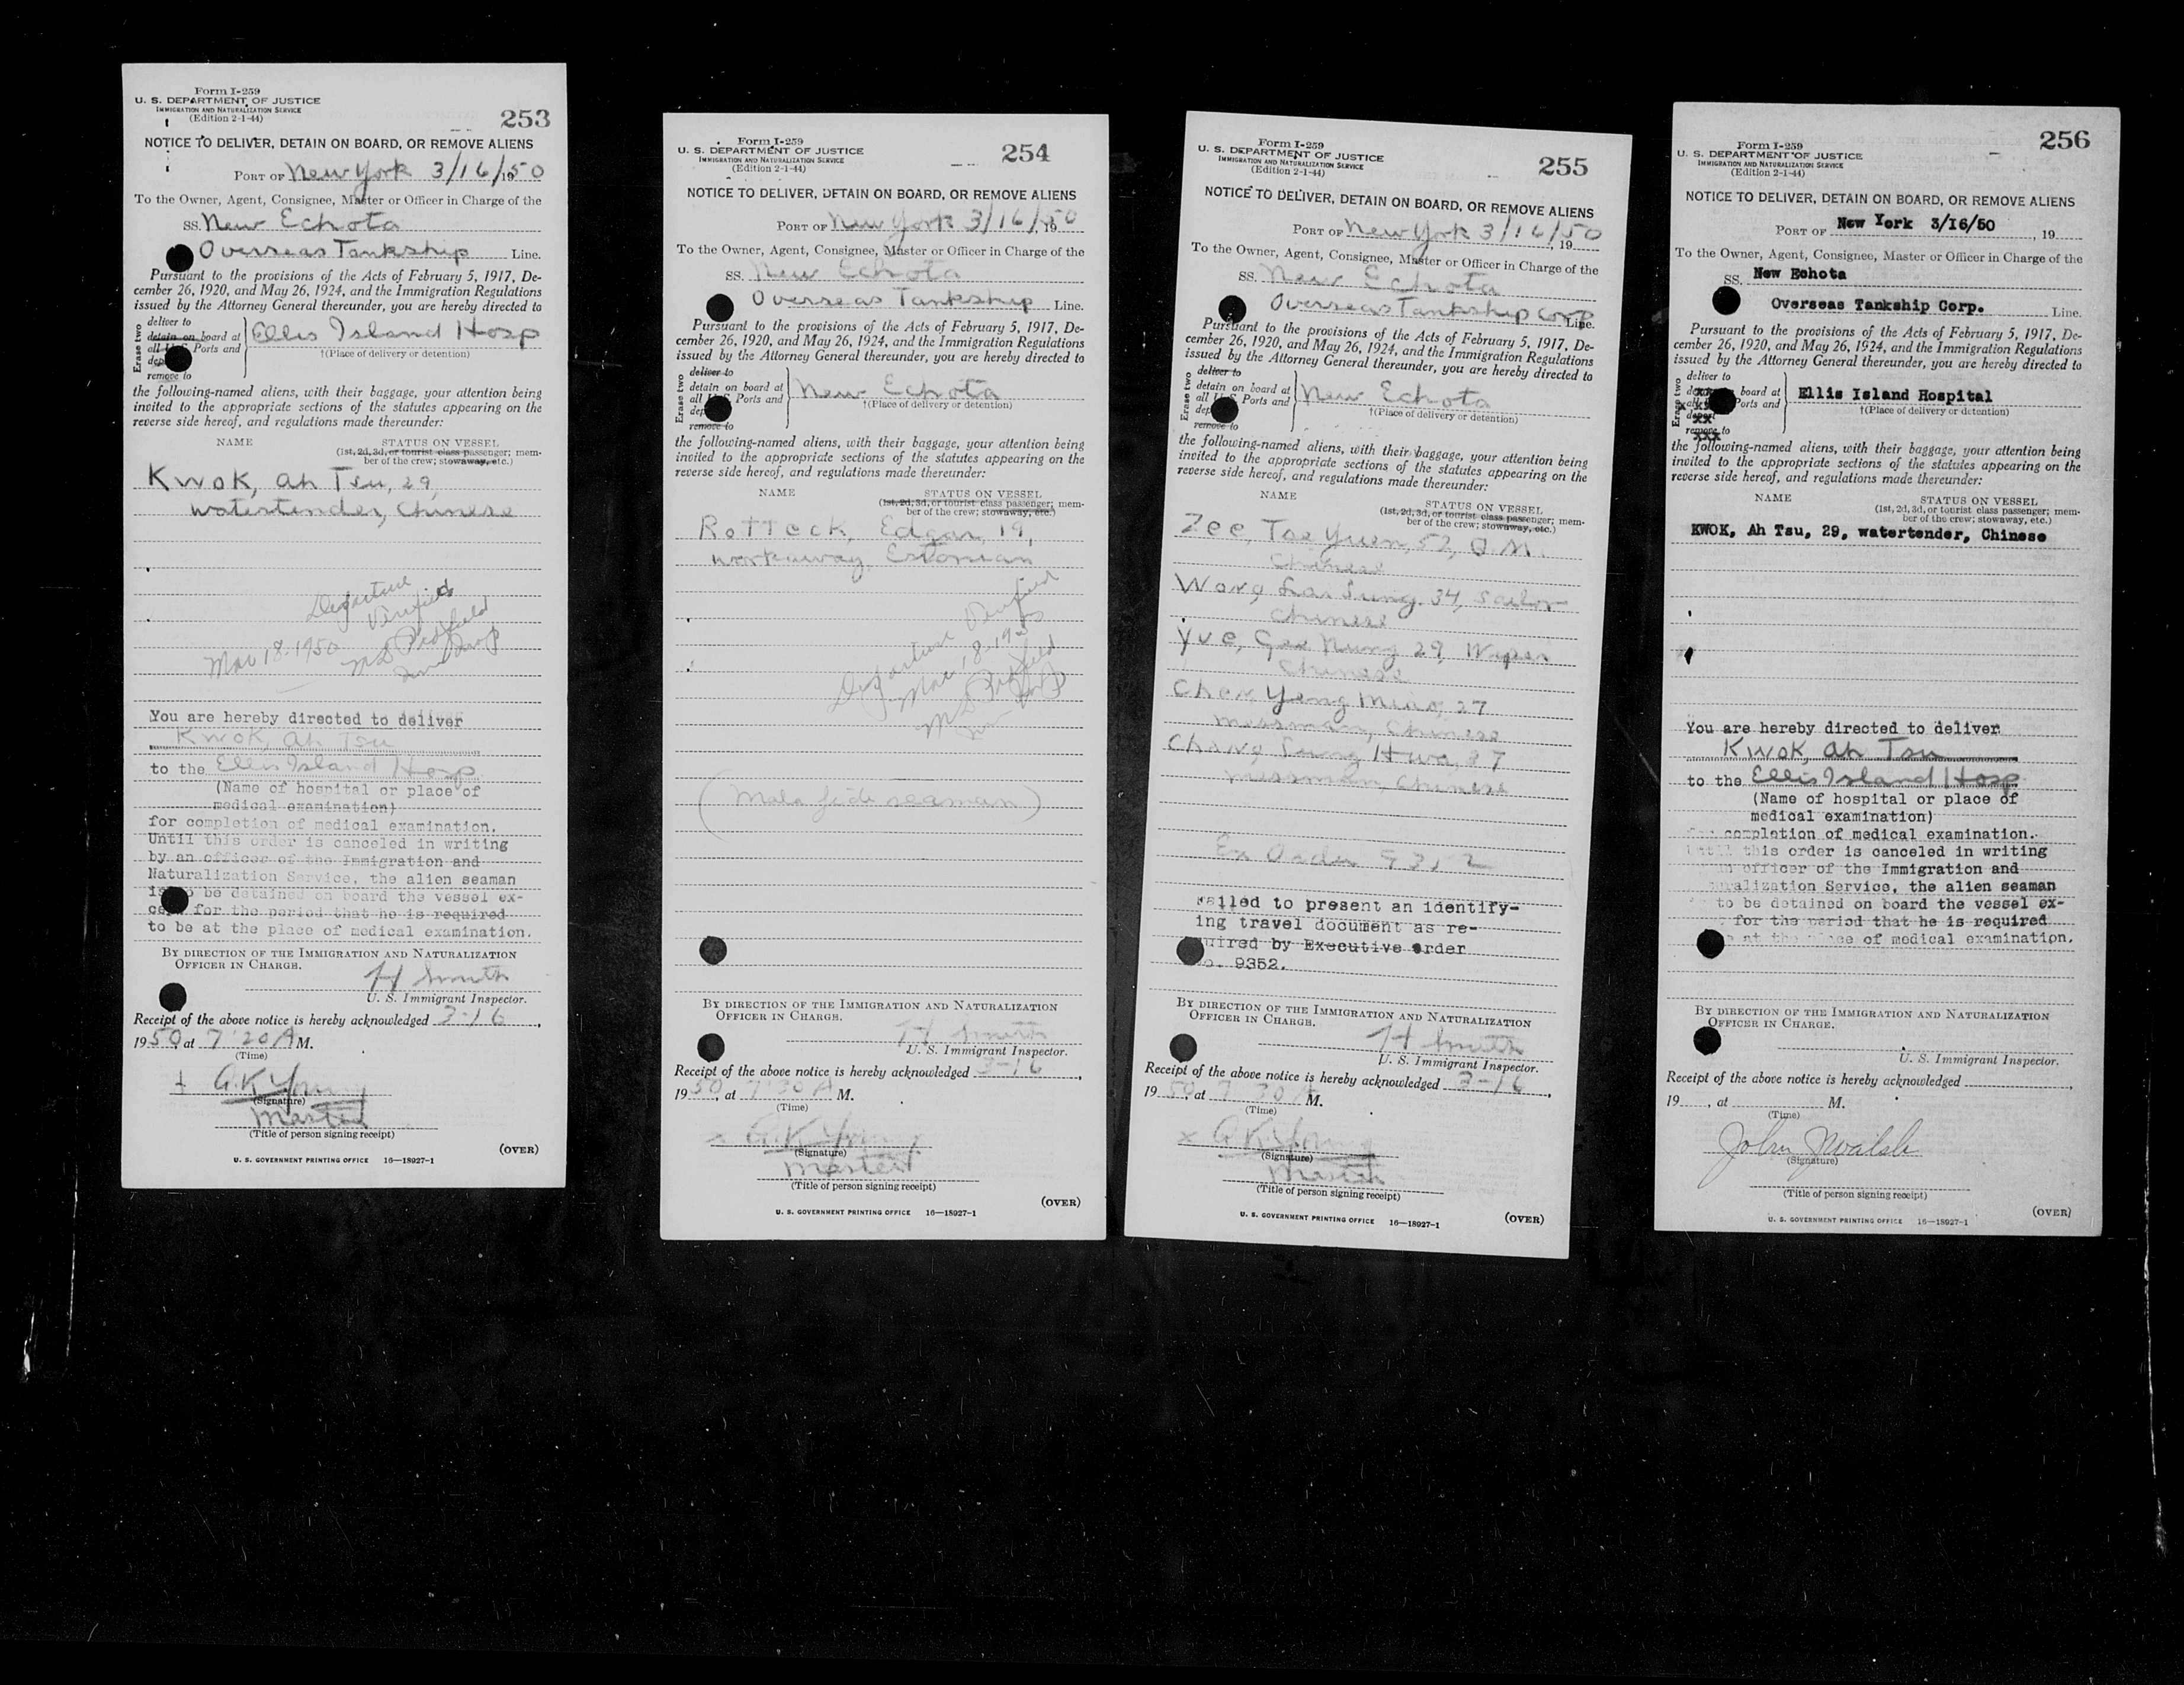 Form I-259
U. S. DEPARTMENT OF JUSTICE
IMMIGRATION AND NATURALIZATION SERVICE
(Edition 2-1-44)
253
NOTICE TO DELIVER, DETAIN ON BOARD, OR REMOVE ALIENS
PORT OF New York 3/16/1950
To the Owner, Agent, Consignee, Master or Officer in Charge of the
SS. New Echota
Overseas Tankship Line.
Pursuant to the provisions of the Acts of February 5, 1917, De-
cember 26, 1920, and May 26, 1924, and the Immigration Regulations
issued by the Attorney General thereunder, you are hereby directed to
Erase two
deliver to
detain on board at
all U. S. Ports and
remove to
Ellis Island Hosp
†(Place of delivery or detention)
the following-named aliens, with their baggage, your attention being
invited to the appropriate sections of the statutes appearing on the
reverse side hereof, and regulations made thereunder:
NAME STATUS ON VESSEL
(1st, 2d, 3d, or tourist class passenger; mem-
ber of the crew; stowaway, etc.)
Kwok, Ah Tsu, 29,
watertender, Chinese
Departure
Verified
Mar 18-1950
You are hereby directed to deliver
Kwok, Ah Tsu
to the Ellis Island Hosp
(Name of hospital or place of
medical examination)
for completion of medical examination.
Until this order is canceled in writing
by an officer of the Immigration and
Naturalization Service, the alien seaman
is to be detained on board the vessel ex-
cept for the period that he is required
to be at the place of medical examination.
BY DIRECTION OF THE IMMIGRATION AND NATURALIZATION
OFFICER IN CHARGE.
H Smith
U. S. Immigrant Inspector.
Receipt of the above notice is hereby acknowledged 3-16,
1950, at 7 20 A M.
(Time)
G.K. Young
(Signature)
Master
(Title of person signing receipt)
(OVER)
U. S. GOVERNMENT PRINTING OFFICE 16—18927-1
Form I-259
U. S. DEPARTMENT OF JUSTICE
IMMIGRATION AND NATURALIZATION SERVICE
(Edition 2-1-44)
254
NOTICE TO DELIVER, DETAIN ON BOARD, OR REMOVE ALIENS
PORT OF New York 3/16/, 1950
To the Owner, Agent, Consignee, Master or Officer in Charge of the
SS. New Echota
Overseas Tankship Line.
Pursuant to the provisions of the Acts of February 5, 1917, De-
cember 26, 1920, and May 26, 1924, and the Immigration Regulations
issued by the Attorney General thereunder, you are hereby directed to
Erase two
deliver to
detain on board at
all U. S. Ports and
remove to
New Echota
†(Place of delivery or detention)
the following-named aliens, with their baggage, your attention being
invited to the appropriate sections of the statutes appearing on the
reverse side hereof, and regulations made thereunder:
NAME STATUS ON VESSEL
(1st, 2d, 3d, or tourist class passenger; mem-
ber of the crew; stowaway, etc.)
Rotteck, Edgar, 19,
workaway, Estonian
Departure Verified
Mar 18-1950
(Mala fide seaman)
BY DIRECTION OF THE IMMIGRATION AND NATURALIZATION
OFFICER IN CHARGE.
H Smith
U. S. Immigrant Inspector.
Receipt of the above notice is hereby acknowledged 3-16,
1950, at 7 30 A M.
(Time)
x G.K. Young
(Signature)
Master
(Title of person signing receipt)
(OVER)
U. S. GOVERNMENT PRINTING OFFICE 16—18927-1
Form I-259
U. S. DEPARTMENT OF JUSTICE
IMMIGRATION AND NATURALIZATION SERVICE
(Edition 2-1-44)
255
NOTICE TO DELIVER, DETAIN ON BOARD, OR REMOVE ALIENS
PORT OF New York 3/16/, 1950
To the Owner, Agent, Consignee, Master or Officer in Charge of the
SS. New Echota
Overseas Tankship Corp Line.
Pursuant to the provisions of the Acts of February 5, 1917, De-
cember 26, 1920, and May 26, 1924, and the Immigration Regulations
issued by the Attorney General thereunder, you are hereby directed to
Erase two
deliver to
detain on board at
all U. S. Ports and
remove to
New Echota
†(Place of delivery or detention)
the following-named aliens, with their baggage, your attention being
invited to the appropriate sections of the statutes appearing on the
reverse side hereof, and regulations made thereunder:
NAME STATUS ON VESSEL
(1st, 2d, 3d, or tourist class passenger; mem-
ber of the crew; stowaway, etc.)
Zee, Tse Yuen, 52, Q.M.
Chinese
Wong Lai Sung. 34, Sailor
Chinese
Yue, Gee Nung 29, Wiper
Chinese
Chen, Yeng Miao, 27
messman, Chinese
Chang Sung Hwa, 37
messman, Chinese
Ex Order 9352
Failed to present an identify-
ing travel document as re-
quired by Executive order
No. 9352.
BY DIRECTION OF THE IMMIGRATION AND NATURALIZATION
OFFICER IN CHARGE.
H Smith
U. S. Immigrant Inspector.
Receipt of the above notice is hereby acknowledged 3-16,
1950, at 7 30 A M.
(Time)
x G.K. Young
(Signature)
Master
(Title of person signing receipt)
(OVER)
U. S. GOVERNMENT PRINTING OFFICE 16—18927-1
Form I-259
U. S. DEPARTMENT OF JUSTICE
IMMIGRATION AND NATURALIZATION SERVICE
(Edition 2-1-44)
256
NOTICE TO DELIVER, DETAIN ON BOARD, OR REMOVE ALIENS
PORT OF New York 3/16/50, 19
To the Owner, Agent, Consignee, Master or Officer in Charge of the
SS. New Echota
Overseas Tankship Corp. Line.
Pursuant to the provisions of the Acts of February 5, 1917, De-
cember 26, 1920, and May 26, 1924, and the Immigration Regulations
issued by the Attorney General thereunder, you are hereby directed to
Erase two
deliver to
board at
Ports and
remove to
Ellis Island Hospital
†(Place of delivery or detention)
the following-named aliens, with their baggage, your attention being
invited to the appropriate sections of the statutes appearing on the
reverse side hereof, and regulations made thereunder:
NAME STATUS ON VESSEL
(1st, 2d, 3d, or tourist class passenger; mem-
ber of the crew; stowaway, etc.)
KWOK, Ah Tsu, 29, watertender, Chinese
You are hereby directed to deliver
Kwok, Ah Tsu
to the Ellis Island Hosp
(Name of hospital or place of
medical examination)
for completion of medical examination.
Until this order is canceled in writing
an officer of the Immigration and
Naturalization Service, the alien seaman
to be detained on board the vessel ex-
for the period that he is required
at the place of medical examination.
BY DIRECTION OF THE IMMIGRATION AND NATURALIZATION
OFFICER IN CHARGE.
U. S. Immigrant Inspector.
Receipt of the above notice is hereby acknowledged
19, at M.
(Time)
John J Walsh
(Signature)
(Title of person signing receipt)
(OVER)
U. S. GOVERNMENT PRINTING OFFICE 16—18927-1